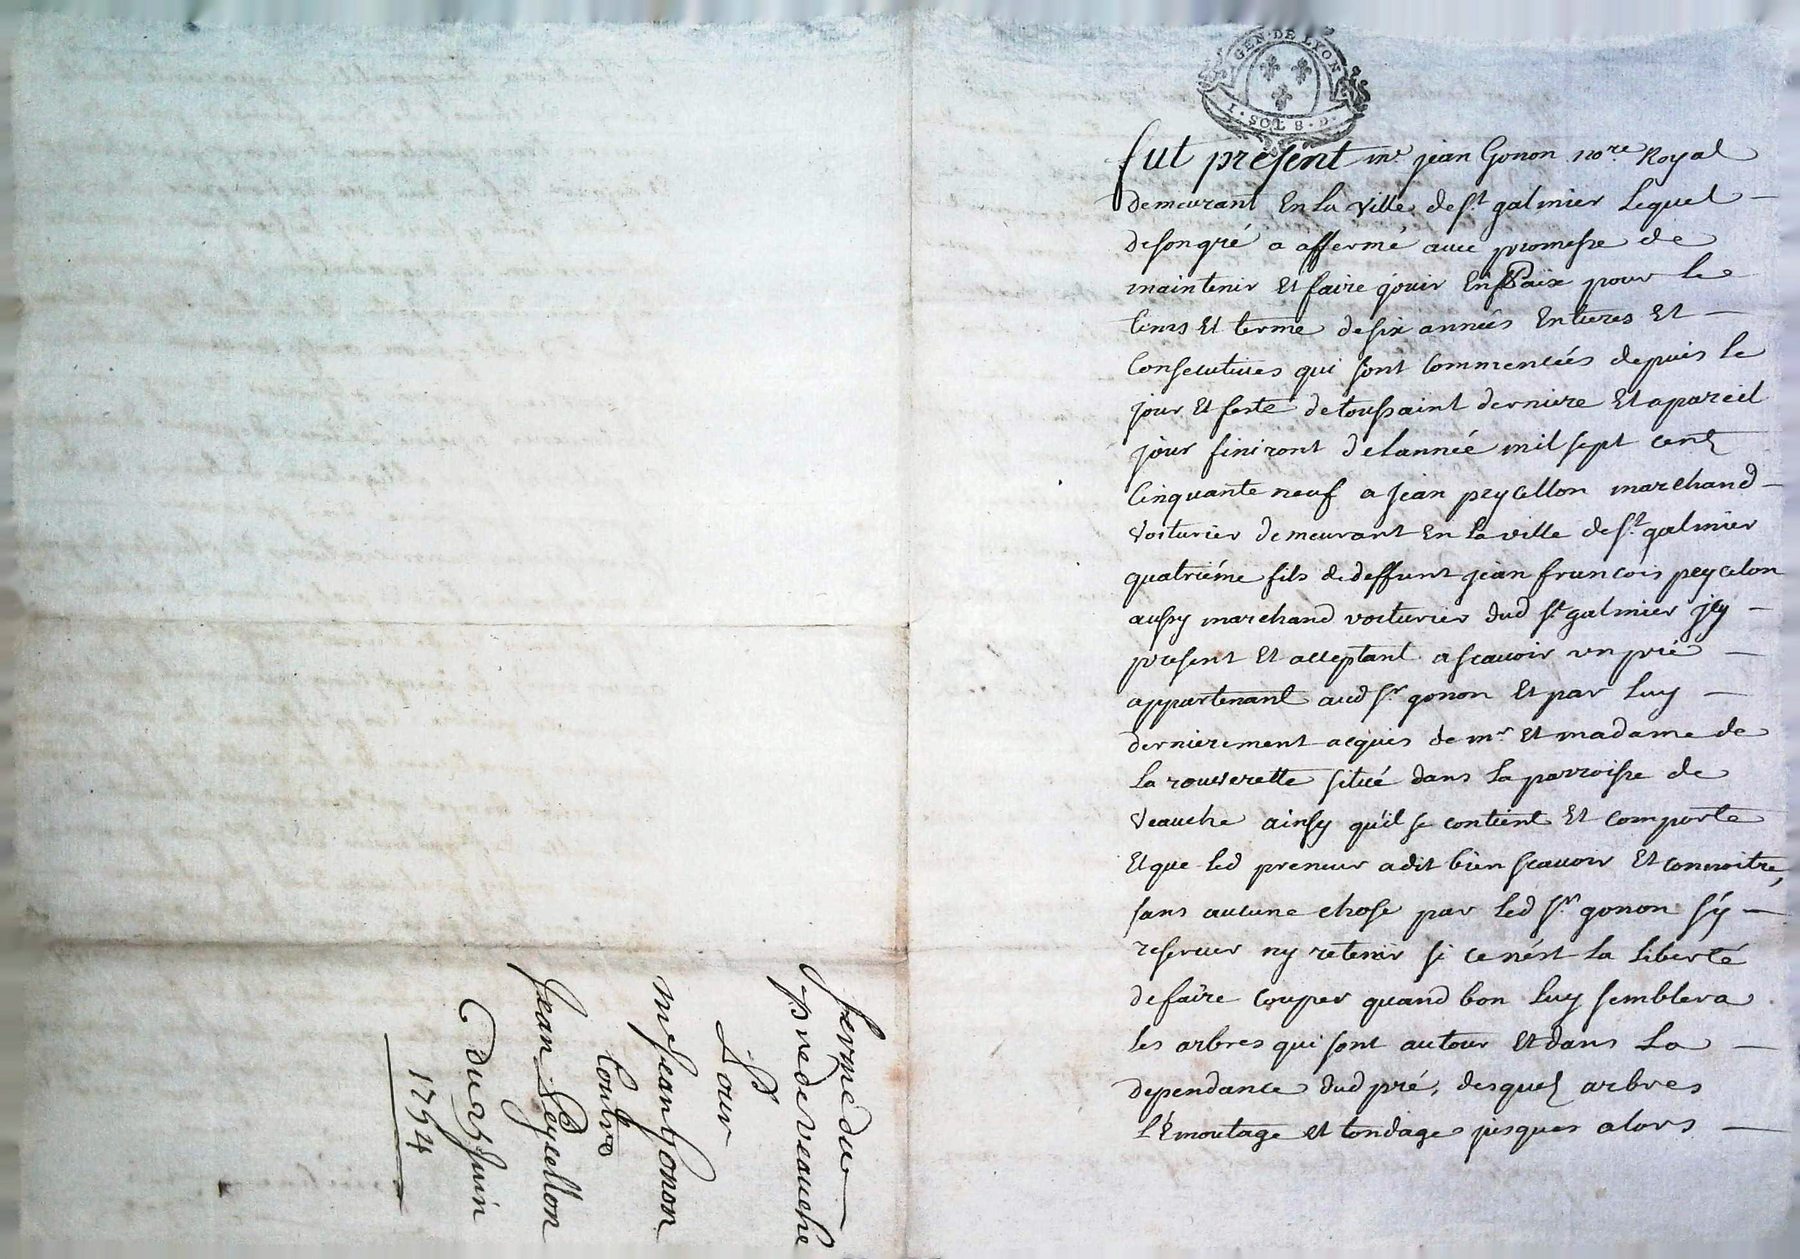 GEN·DE LYON
I·SOL 8·D·
fut present mr jean Gonon nore Royal
demeurant En La ville de st galmier Lequel
de son gré a affermé avec promesse de
maintenir Et faire jouir En Paix pour le
tems Et terme de six années Entieres Et
Consecutives qui sont commencées depuis le
jour Et feste de toussaint derniere Et a pareil
jour finiront de lannée mil sept cent
Cinquante neuf a jean peycellon marchand
voiturier demeurant En La ville de st galmier
quatriéme fils de deffunt jean francois peycelon
aussy marchand voiturier dud st galmier jcy
present Et acceptant a scavoir un pré
appartenant aud sr gonon Et par Luy
dernierement acquis de mr Et madame de
La rouverette situé dans La parroisse de
veauche ainsy qu'il se contient Et comporte
Et que led preneur a dit bien scavoir Et connoitre,
sans aucune chose par led sr gonon s'y
reserver ny retenir si ce n'est La liberté
de faire couper quand bon Luy semblera
les arbres qui sont autour Et dans La
dependance dud pré, desquels arbres
L'Emoutage et tondage jusques alors
ferme du
pré de veauche
Pour
me jean Gonon
Contre
Jean Peycellon
Du 23 Juin
1754